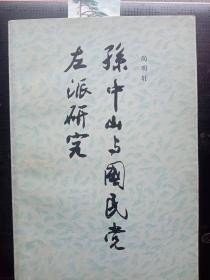 孫中山与國民党
左派研究
尚明轩